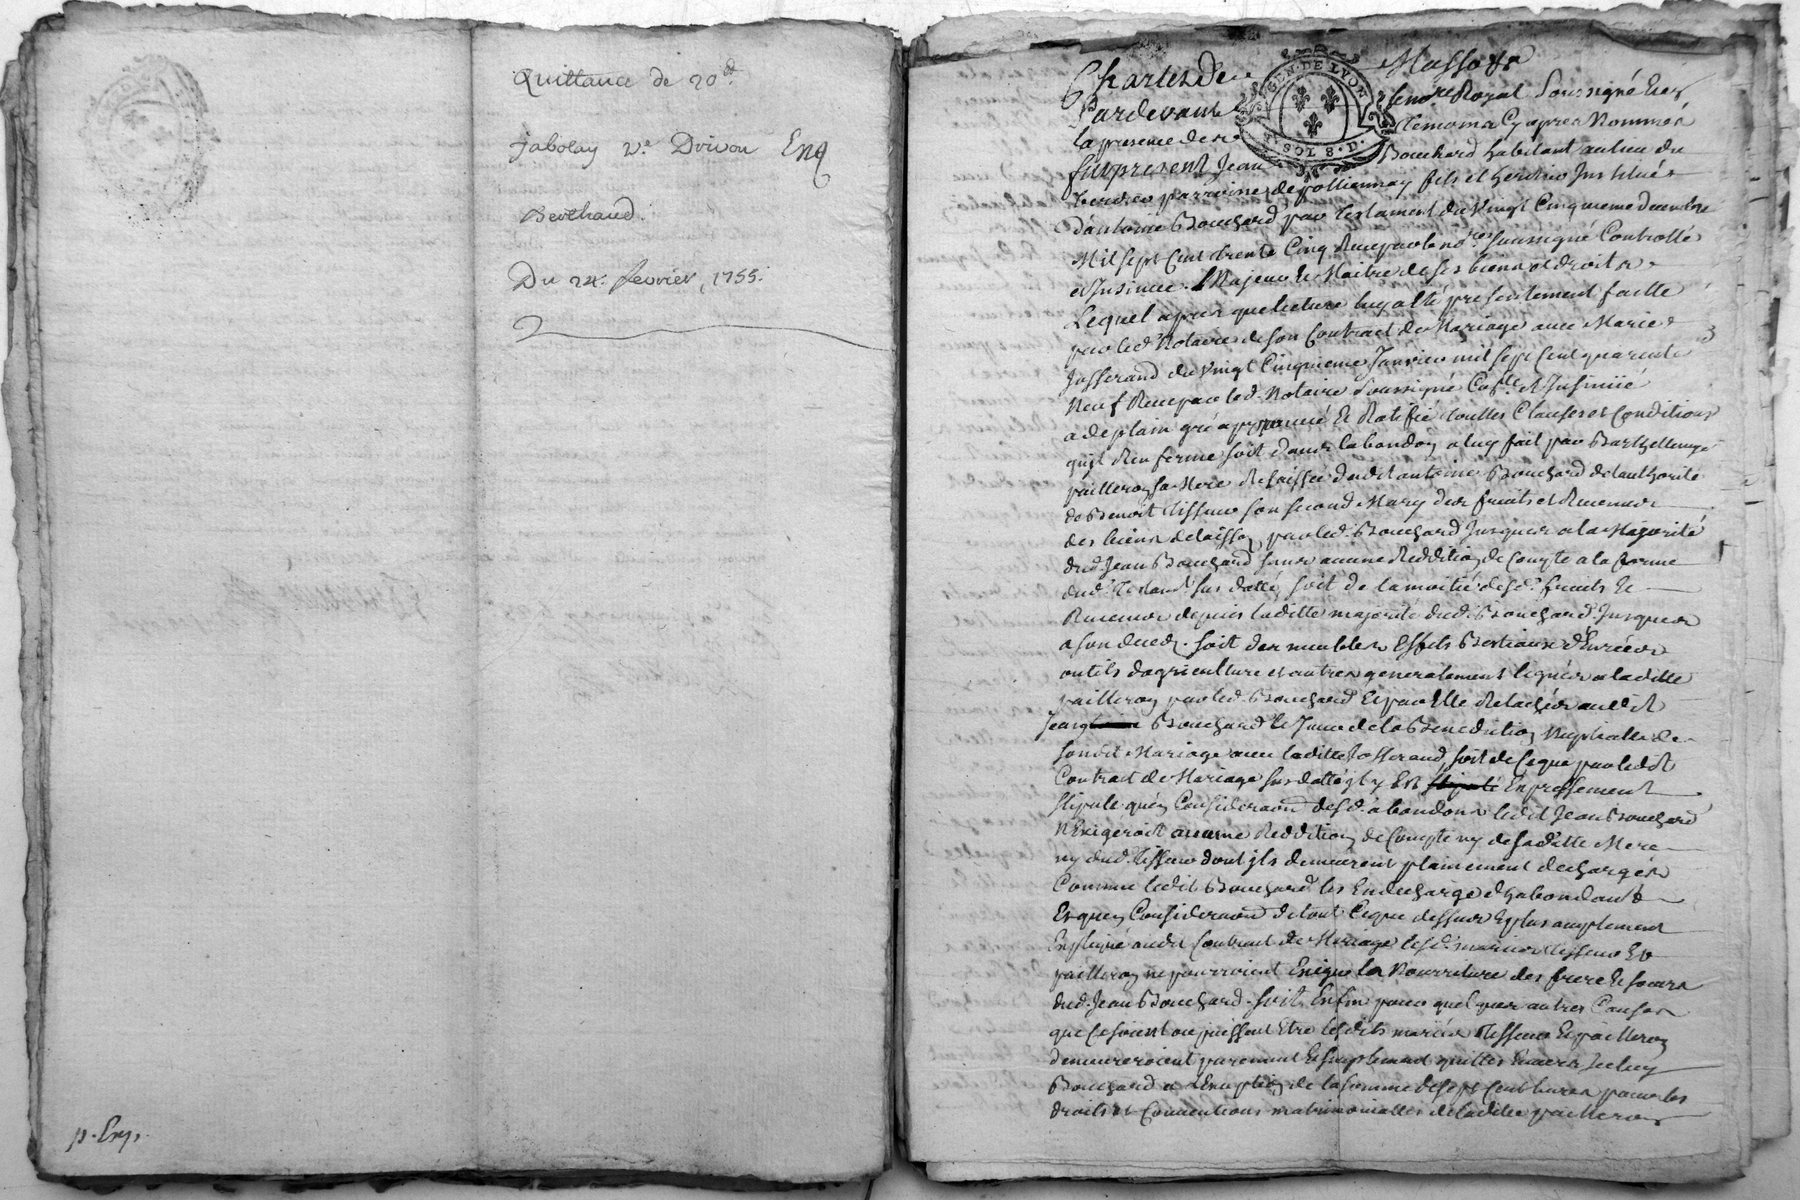 Quittance de 20ᵗᵗ
Jaboley vᵉ Drivon Enq
Berthaud.
Du 24. fevrier, 1755.
p. Exp.
GEN. DE LYON
SOLS 8. D.
Charles De Masso &ᵃ
Pardevant le noʳᵉ Royal Soussigné Et en
la presence des Temoins Cy apres Nommés
fut present Jean Bouchard habitant au lieu du
parroisse de pollionnay fils et heritier Institué
d'antoine Bouchard par testament du Vingt Cinquieme Decembre
Mil sept Cent trente Cinq Reçu par le noʳᵉ soussigné Controllé
et Insinué. Majeur Et Maitre de ses biens et droits
Lequel apres que lecture luy a été presentement faitte
par led. Notaire de son Contract de Mariage avec Marie
Josserand du Vingt Cinquieme Janvier mil sept Cent quarente
Neuf Reçu par led. Notaire Soussigné Coʳˡˡᵉ Et Insinüé
a de plain gré approuvé Et Ratifié touttes Clauses et Conditions
qu'il Renferme soit dans labandon a luy fait par Barthellemye
pailleron sa Mere Relaissée dudit antoine Bouchard de l'authorité
de Benoit tisseur son second Mary des fruits et Revenus
des biens delaissés par led. Bouchard Jusques a la Majorité
dud. Jean Bouchard sans aucune Reddition de Compte a la forme
dud. Testamᵗ sus datté, soit de la moitié desd. fruits Et
Revenus depuis laditte majorité dud. Bouchard Jusques
a son deced. soit des meubles Effets Bestiaux denrées
outils dagriculture et autres generalement legués a laditte
pailleron par led. Bouchard Et par Elle Relachés audit
Jean Bouchard le Jour de la Benediction Nuptialle de
sondit Mariage avec laditte Josserand, soit de ce que par ledit
Contract de Mariage sus datté il y Est stipulé Expressement
stipulé qu'en Consideraon desd. abandons ledit Jean Bouchard
N'Exigeroit aucune Reddition de Compte ny de saditte Mere
ny dud. tisseur dont ils demeurent plainement dechargés
Comme ledit Bouchard les En decharge d'habondant
Et qu'en Consideraon de tout Ce que dessus Et plus amplement
Expliqué audit Contract de Mariage lesd. mariés tisseur Et
pailleron ne pourroient Exiger la Nourriture des frere Et soeurs
dud. Jean Bouchard. soit Enfin pour quelques autres Causes
que Ce soient ou puissent Etre lesdits mariés tisseur Et pailleron
demeureroient purement Et simplement quittes Envers Icelluy
Bouchard a L'Exception de la somme de sept Cent livres pour les
droits et Conventions matrimonialles de laditte pailleron